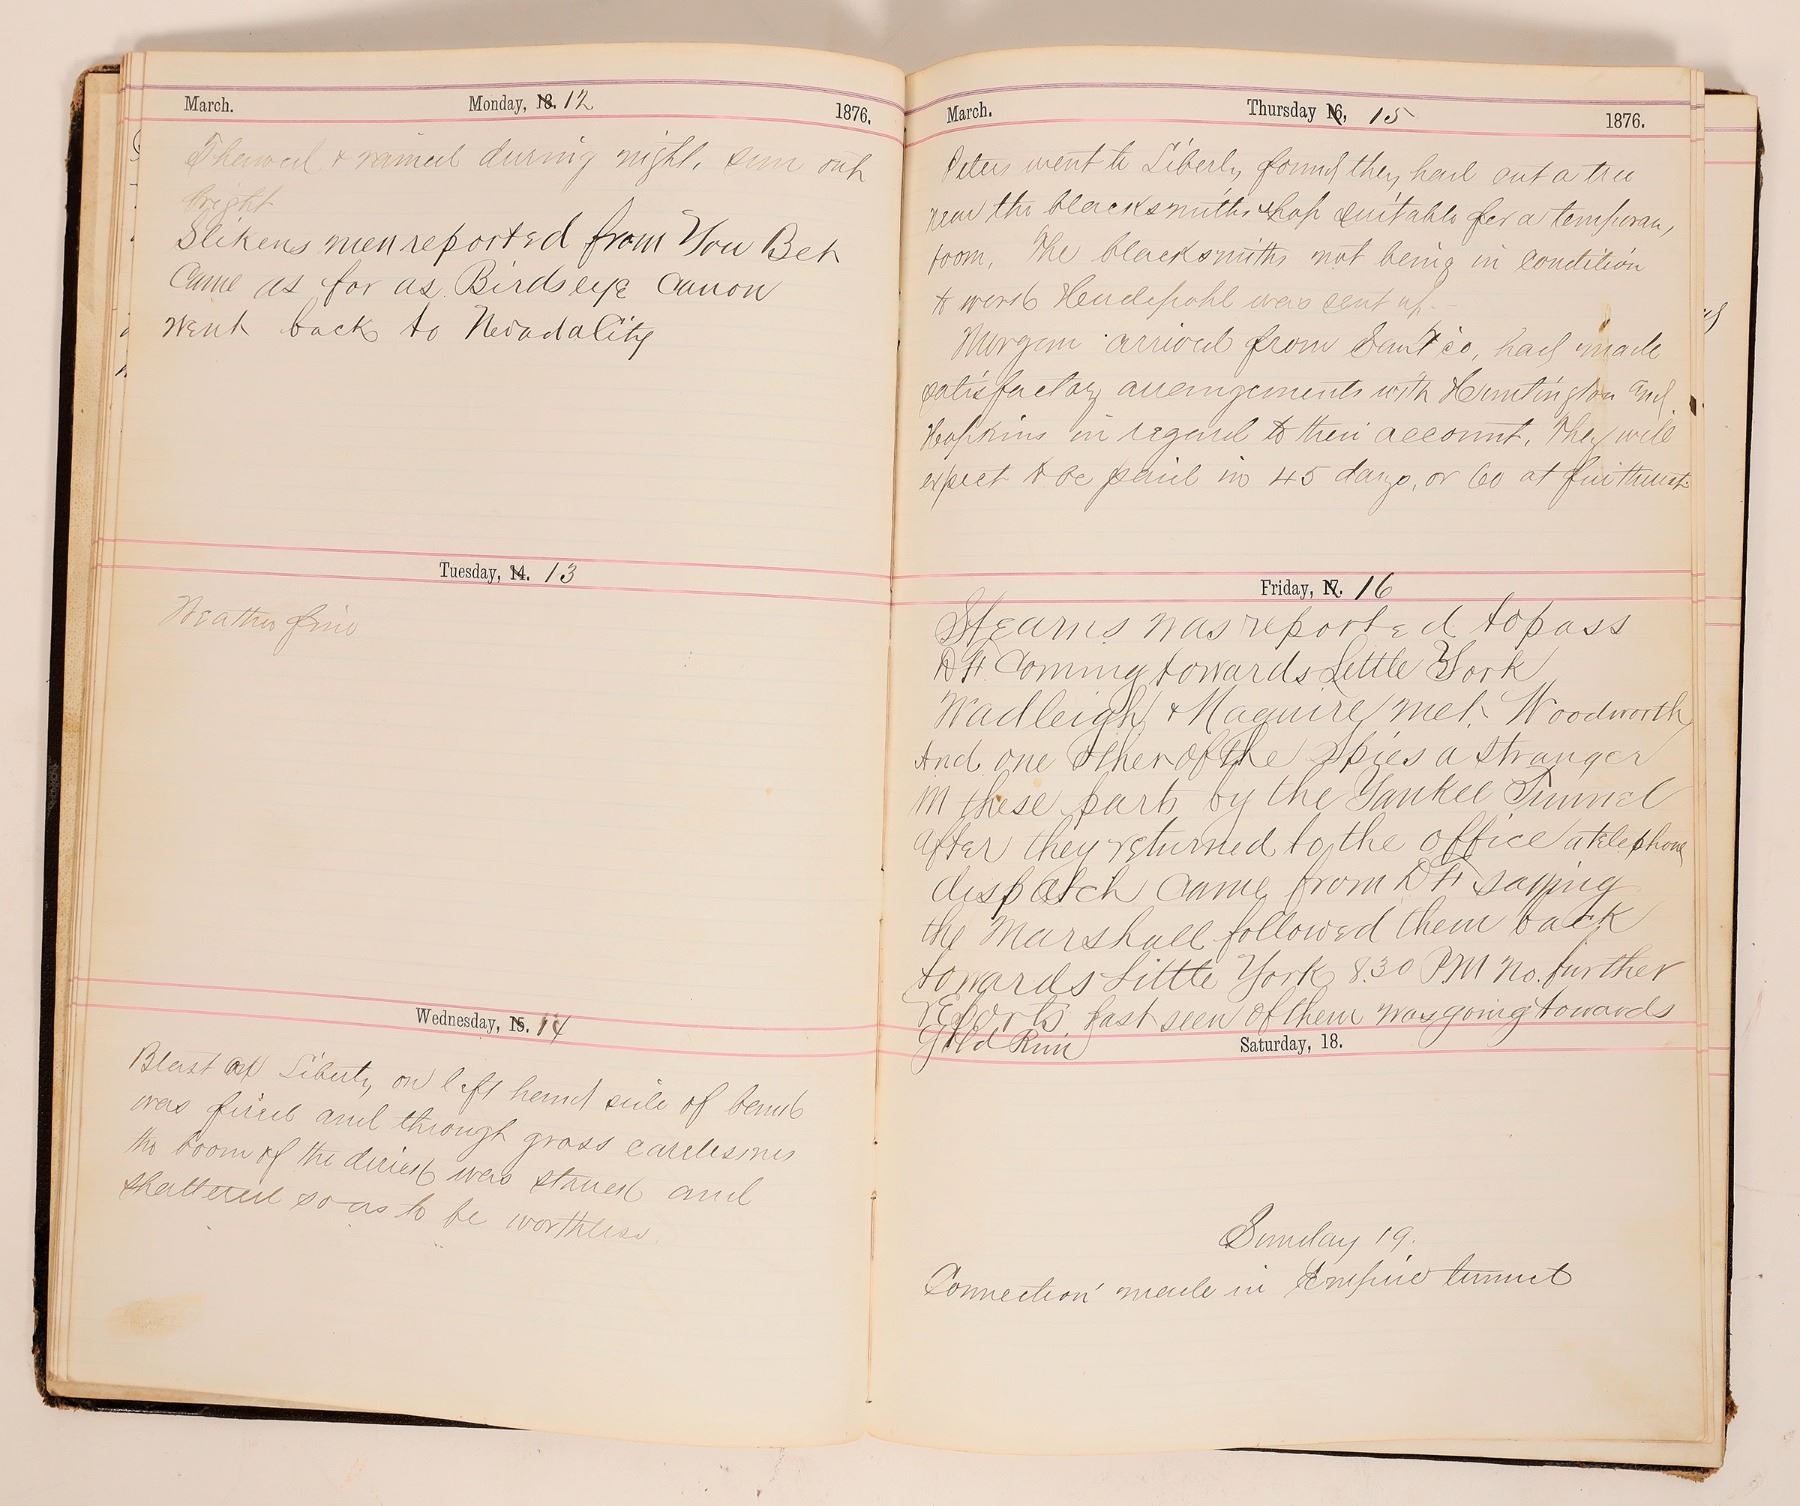 March. Monday, 13. 12 1876.
Thawed & rained during night, sun out
bright
Slikens men reported from You Bet
Came as far as Birdseye Canon
went back to Nevada City
Tuesday, 14. 13
Weather fine
Wednesday, 15. 14
Blast at Liberty on left hand side of bank
was fired and through gross carelesness
the boom of the derick was struck and
shattered so as to be worthless
March. Thursday 16, 15 1876.
Peters went to Liberty found they had cut a tree
near the blacksmiths shop suitable for a temporary
boom. The blacksmiths not being in condition
to work was sent up.
Morgan arrived from San Fco, had made
satisfactory arrangements with Huntington and
Hopkins in regard to their account. They will
expect to be paid in 45 days, or 60 at furthrest
Friday, 17. 16
Stearns was reported to pass
D F. Coming towards Little York
Wadleigh & Maguire met Woodworth
And one other of the spies a stranger
in these parts by the Yankee Tunnel
after they returned to the office a telephone
dispatch came from D F saying
the Marshall followed them back
towards Little York 8.30 PM no further
reports last seen of them was going towards
Gold Run
Saturday, 18.
Sunday 19.
Connection made in Empire tunnel